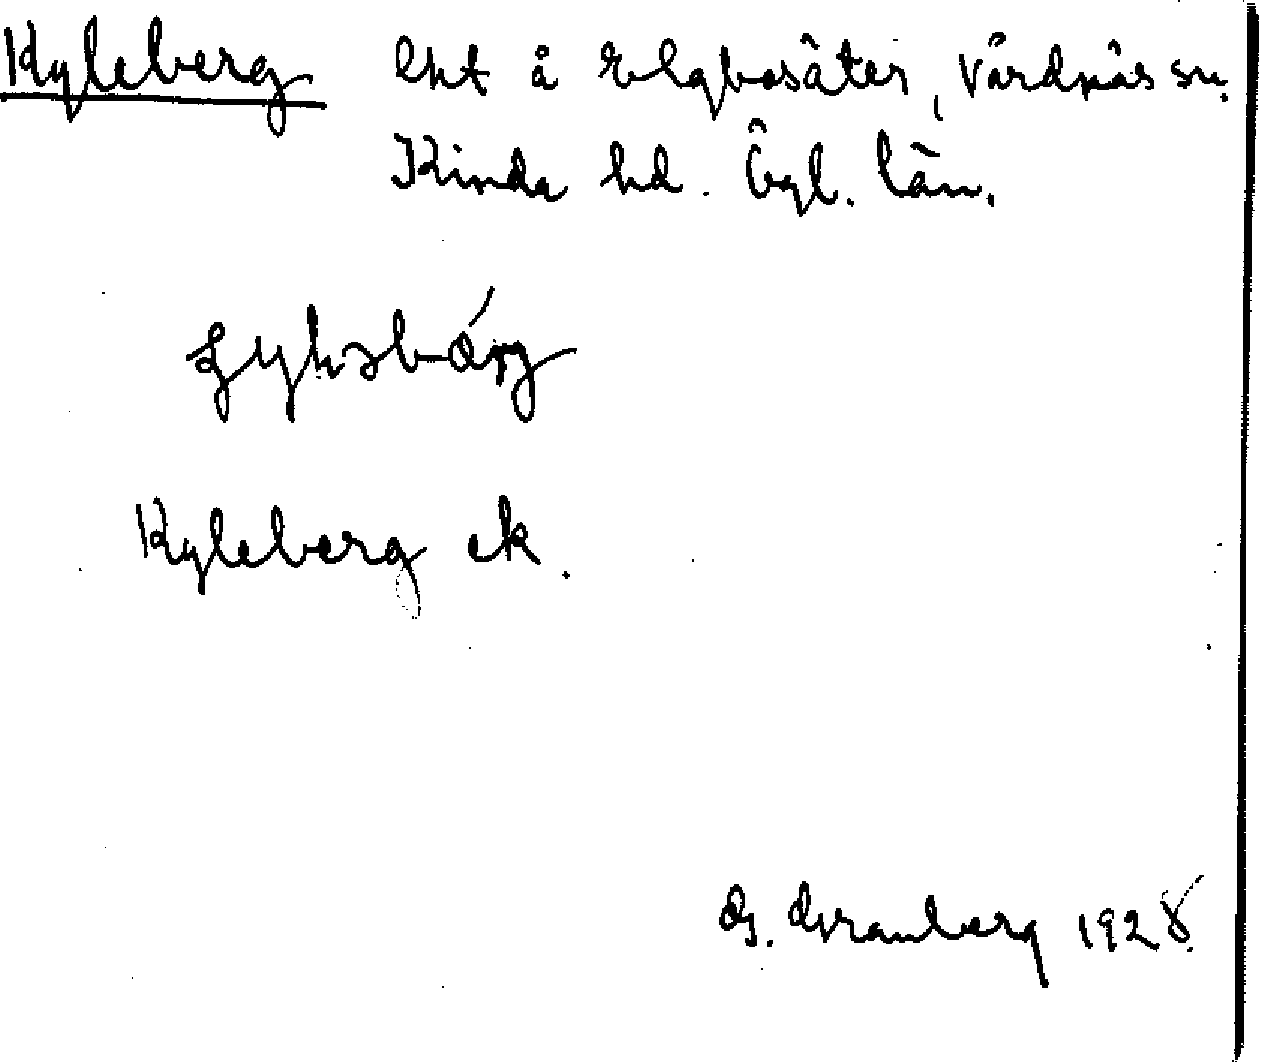 Kyleberg lht å Elgbosäter, Vårdnäs sn.
Kinda hd. Ögl. län.
Kyleberg ek.
G. Granberg 1928.